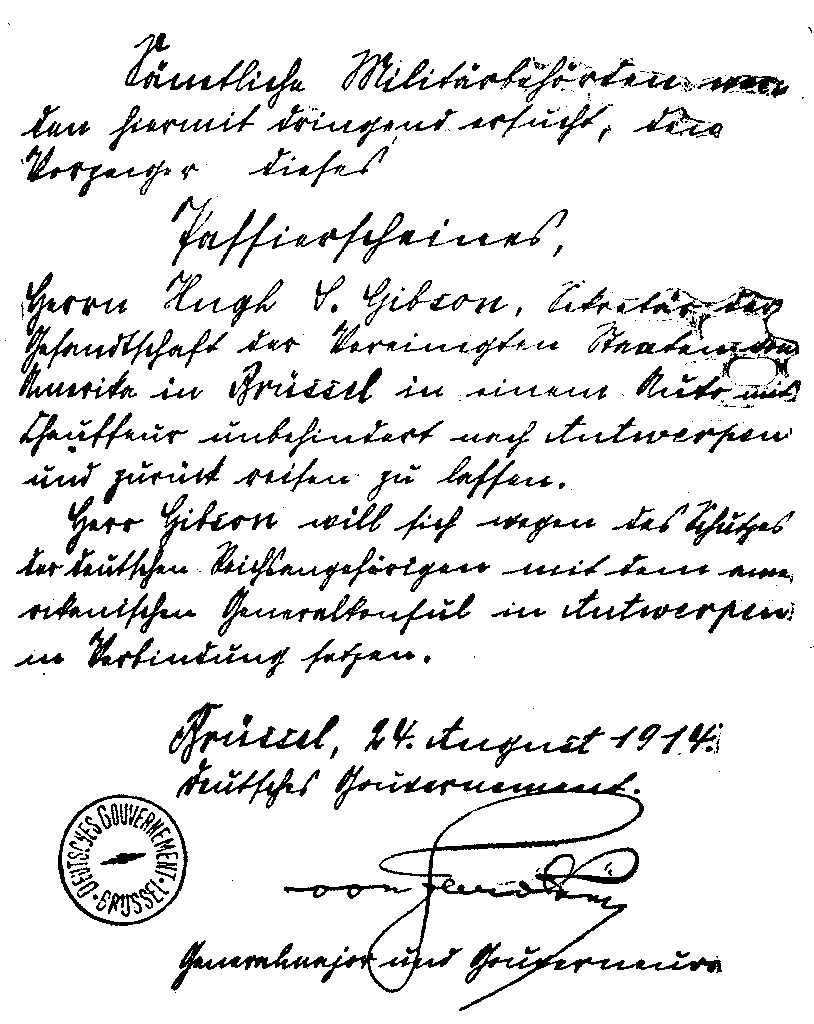 Sämtliche Militärbehörden wer
den hiermit dringend ersucht, den
Vorzeiger dieses
Passierscheines,
Herrn Hugh S. Gibson, Sekretär der
Gesandtschaft der Vereinigten Staaten von
Amerika in Brüssel in einem Auto mit
Chauffeur unbehindert nach Antwerpen
und zurück reisen zu lassen.
Herr Gibson will sich wegen des Schutzes
der deutschen Reichsangehörigen mit dem ame
rikanischen Generalkonsul in Antwerpen
in Verbindung setzen.
Brüssel, 24. August 1914.
Deutsches Gouvernement.
DEUTSCHES GOUVERNEMENT · BRÜSSEL ·
von
Generalmajor und Gouverneur